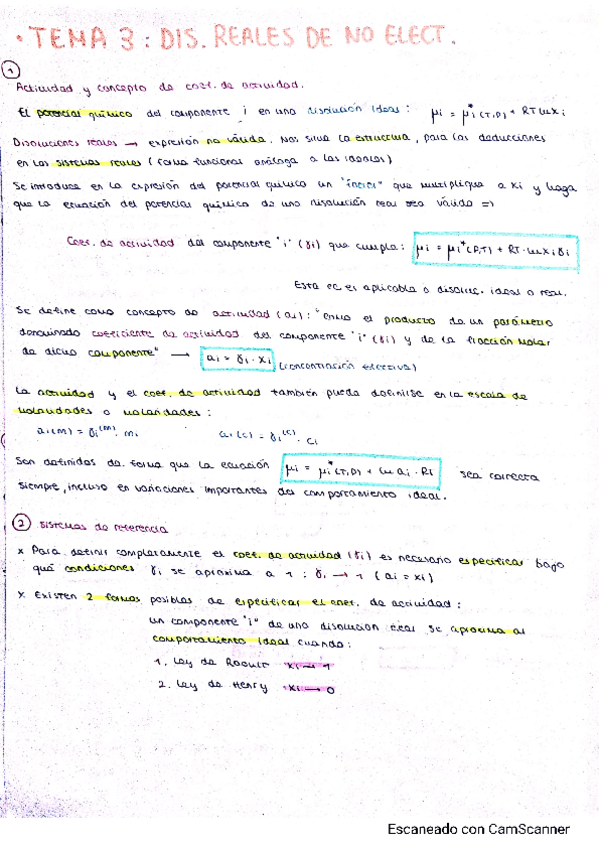 • TEMA 3: DIS. REALES DE NO ELECT.
1
Actividad y concepto de coef. de actividad.
El potencial químico del componente i en una disolución ideal: μi = μi*(T,P) + RT ln xi
Disoluciones reales → expresión no válida. Nos sirve la estructura, para las deducciones
en los sistemas reales (forma funcional análoga a las ideales)
Se introduce en la expresión del potencial químico un "factor" que multiplique a xi y haga
que la ecuación del potencial químico de una disolución real sea válido =>
Coef. de actividad del componente "i" (γi) que cumpla: μi = μi*(P,T) + RT·ln xi γi
Esta ec. es aplicable a disoluc. ideal o real.
Se define como concepto de actividad (ai): "como el producto de un parámetro
denominado coeficiente de actividad del componente "i" (γi) y de la fracción molar
de dicho componente" → ai = γi · xi (concentración efectiva)
La actividad y el coef. de actividad también puede definirse en la escala de
molaridades o molalidades:
ai(m) = γi(m) · mi ai(c) = γi(c) · ci
Son definidas de forma que la ecuación μi = μi*(T,P) + ln ai · RT sea correcta
siempre, incluso en variaciones importantes del comportamiento ideal.
2 Sistemas de referencia
x Para definir completamente el coef. de actividad (γi) es necesario especificar bajo
qué condiciones γi se aproxima a 1: γi → 1 (ai = xi)
x Existen 2 formas posibles de especificar el coef. de actividad:
un componente "i" de una disolución real se aproxima al
comportamiento ideal cuando:
1. Ley de Raoult xi → 1
2. Ley de Henry xi → 0
Escaneado con CamScanner